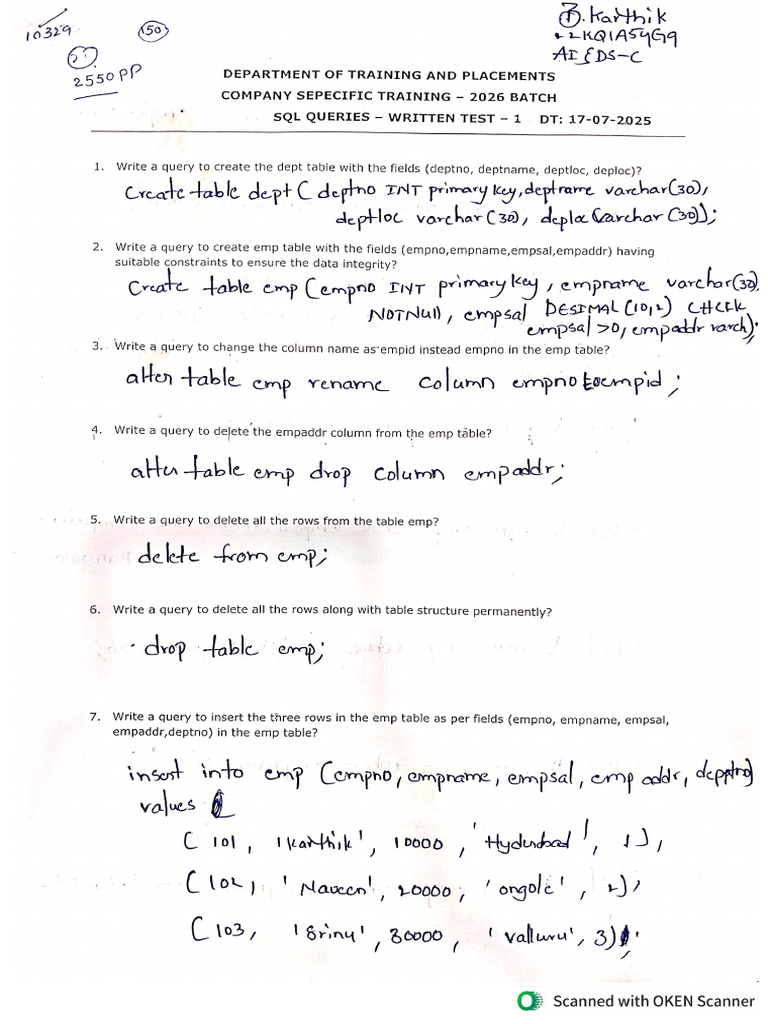 10329
50
2550 PP
B. Karthik
22KQ1A54G9
AI&DS-C
DEPARTMENT OF TRAINING AND PLACEMENTS
COMPANY SEPECIFIC TRAINING – 2026 BATCH
SQL QUERIES – WRITTEN TEST – 1 DT: 17-07-2025
1. Write a query to create the dept table with the fields (deptno, deptname, deptloc, deploc)?
Create table dept ( deptno INT primary key, deptname varchar(30),
deptloc varchar(30), deploc varchar(30));
2. Write a query to create emp table with the fields (empno,empname,empsal,empaddr) having
suitable constraints to ensure the data integrity?
Create table emp (empno INT primary key, empname varchar(30),
NOTNull, empsal DESIMAL(10,2) CHCFK
empsal >0, empaddr varch);
3. Write a query to change the column name as empid instead empno in the emp table?
alter table emp rename column empno to empid;
4. Write a query to delete the empaddr column from the emp table?
alter table emp drop column empaddr;
5. Write a query to delete all the rows from the table emp?
delete from emp;
6. Write a query to delete all the rows along with table structure permanently?
drop table emp;
7. Write a query to insert the three rows in the emp table as per fields (empno, empname, empsal,
empaddr,deptno) in the emp table?
insert into emp (empno, empname, empsal, emp addr, deptno)
values
( 101, 'Karthik', 10000, 'Hyderabad', 1),
(102, 'Naveen', 20000, 'ongole', 2),
(103, 'Srinu', 30000, 'valluru', 3);
Scanned with OKEN Scanner